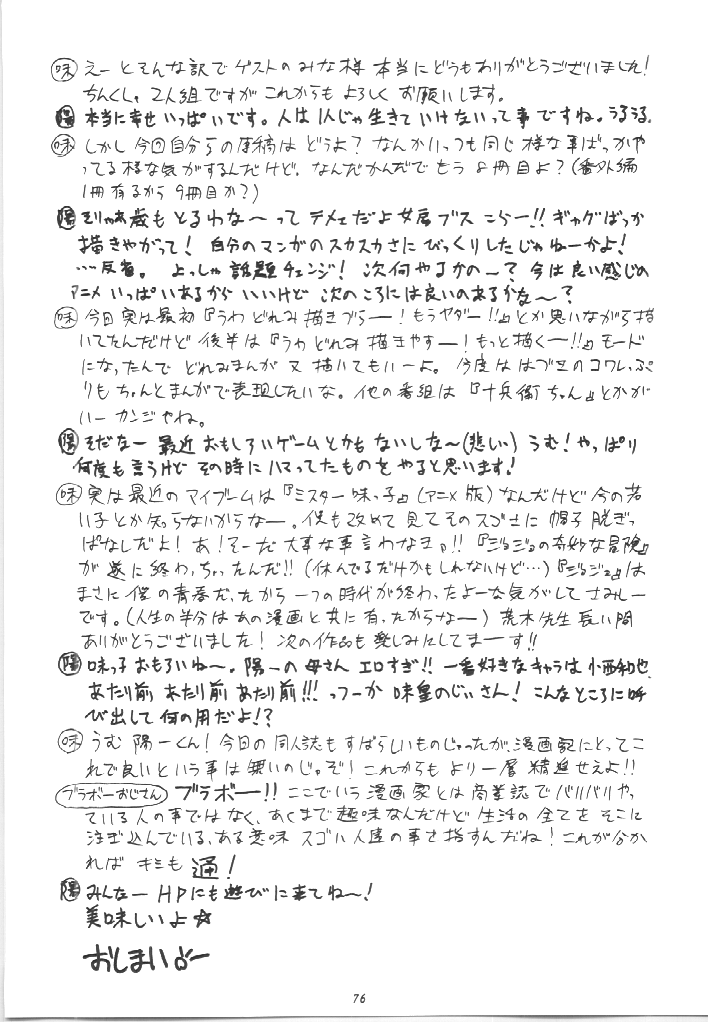 味 えーとそんな訳でゲストのみな様本当にどうもありがとうございました!
ちんくしゃ2人組ですがこれからもよろしくお願いします。
陽 本当に幸せいっぱいです。人は1人じゃ生きていけないって事ですね。うるうる。
味 しかし今回自分らの原稿はどうよ?なんかいっつも同じ様な事ばっかや
ってる様な気がするんだけど。なんだかんだでもう8冊目よ?(番外編
1冊有るから9冊目か?)
陽 そりゃあ歳もとるわな〜ってテメェだよ女房ブスこらー!!ギャグばっか
描きやがって!自分のマンガのスカスカさにびっくりしたじゃねーかよ!
…反省。よっしゃ話題チェンジ!次何やるかの〜?今は良い感じの
アニメいっぱいあるからいいけど次のころには良いのあるかな〜?
味 今回実は最初『うわどれみ描きづらー!もうヤダー!!』とか思いながら描
いてたんだけど後半は『うわどれみ描きやすー!もっと描くー!!』モード
になったんでどれみまんが又描いてもいーよ。今度ははづきのコワレっぷ
りもちゃんとまんがで表現したいな。他の番組は『十兵衛ちゃん』とかが
いーカンジやね。
陽 そだなー最近おもしろいゲームとかもないしな〜(悲しい)うむ!やっぱり
何度も言うけどその時にハマってたものをやると思います!
味 実は最近のマイブームは『ミスター味っ子』(アニメ版)なんだけど今の若
い子とか知らないからなー。僕も改めて見てそのスゴさに帽子脱ぎっ
ぱなしだよ!あ!そーだ大事な事言わなきゃ!!『ジョジョの奇妙な冒険』
が遂に終わっちゃったんだ!!(休んでるだけかもしれないけど…)『ジョジョ』は
まさに僕の青春だったから一つの時代が終わったよーな気がしてさみしー
です。(人生の半分はあの漫画と共に有ったからなー)荒木先生長い間
ありがとうございました!次の作品も楽しみにしてまーす!!
陽 味っ子おもろいね〜。陽一の母さんエロすぎ!!一番好きなキャラは小西和也
あたり前あたり前あたり前!!!っつーか味皇のじいさん!こんなところに呼
び出して何の用だよ!?
味 うむ陽一くん!今回の同人誌もすばらしいものじゃったが、漫画記にとってこ
れで良いという事は無いのじゃぞ!これからもより一層精進せえよ!!
ブラボーおじさん ブラボー!!ここでいう漫画家とは商業誌でバリバリやっ
ている人の事ではなく、あくまで趣味なんだけど生活の全てをそこに
注ぎ込んでいる、ある意味スゴい人達の事を指すんだね!これが分か
ればキミも通!
陽 みんなーHPにも遊びに来てね〜!
美味しいよ☆
おしまい
76